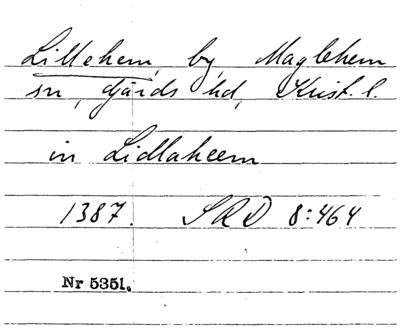 Lillehem, by, Maglehem
sn, Gärds hd, Krist. l.
in Lidlaheem
1387. SRD 8:464
Nr 5351.